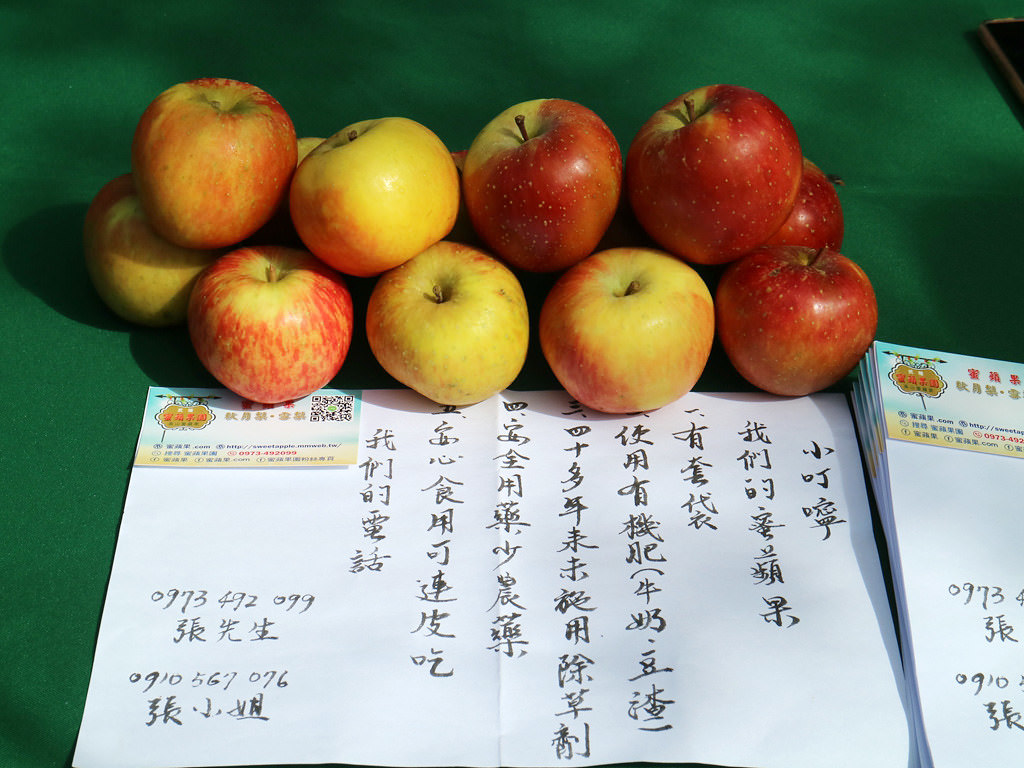 小叮嚀
我們的蜜蘋果
一、有套袋
使用有機肥(牛奶、豆渣)
三、四十多年來未施用除草劑
四、安全用藥少農藥
五、安心食用可連皮吃
我們的電話
0973 492 099
張先生
0910 567 076
張小姐
蜜蘋果園
蜜蘋果
秋月梨·雪梨
蜜蘋果.com http://sweetapple.mmweb.tw/
搜尋 蜜蘋果園 0973-492099
蜜蘋果 蜜蘋果.com 蜜蘋果園粉絲專頁
蜜蘋果園
蜜蘋果
秋月梨·雪
蜜蘋果.com http://sweetapp
搜尋 蜜蘋果園 0973-4920
蜜蘋果 蜜蘋果.com
0973 4
張
0910
張